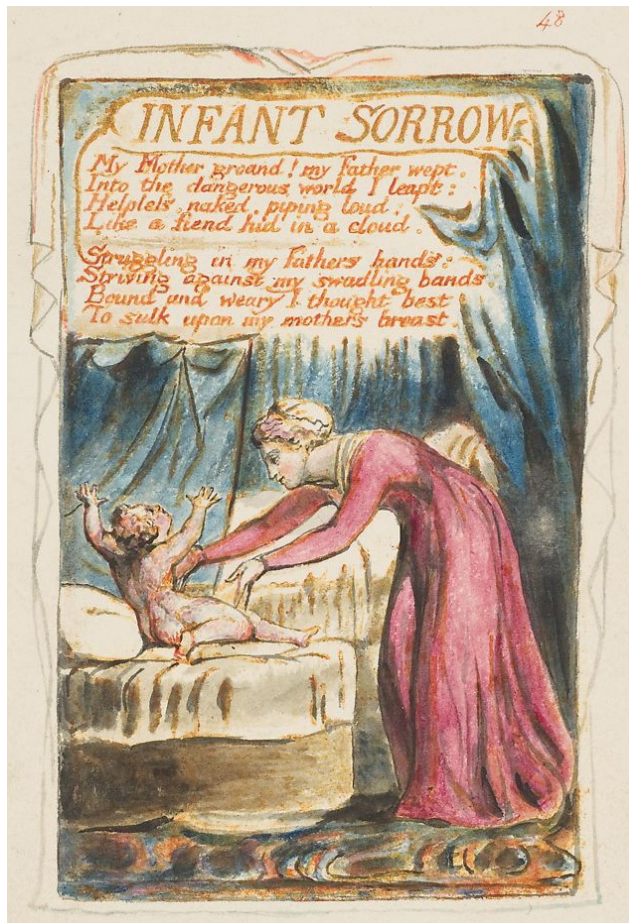 48
INFANT SORROW
My Mother groand! my Father wept.
Into the dangerous world I leapt:
Helpless, naked, piping loud:
Like a fiend hid in a cloud.
Struggling in my fathers hands:
Striving against my swadling bands:
Bound and weary I thought best
To sulk upon my mothers breast.